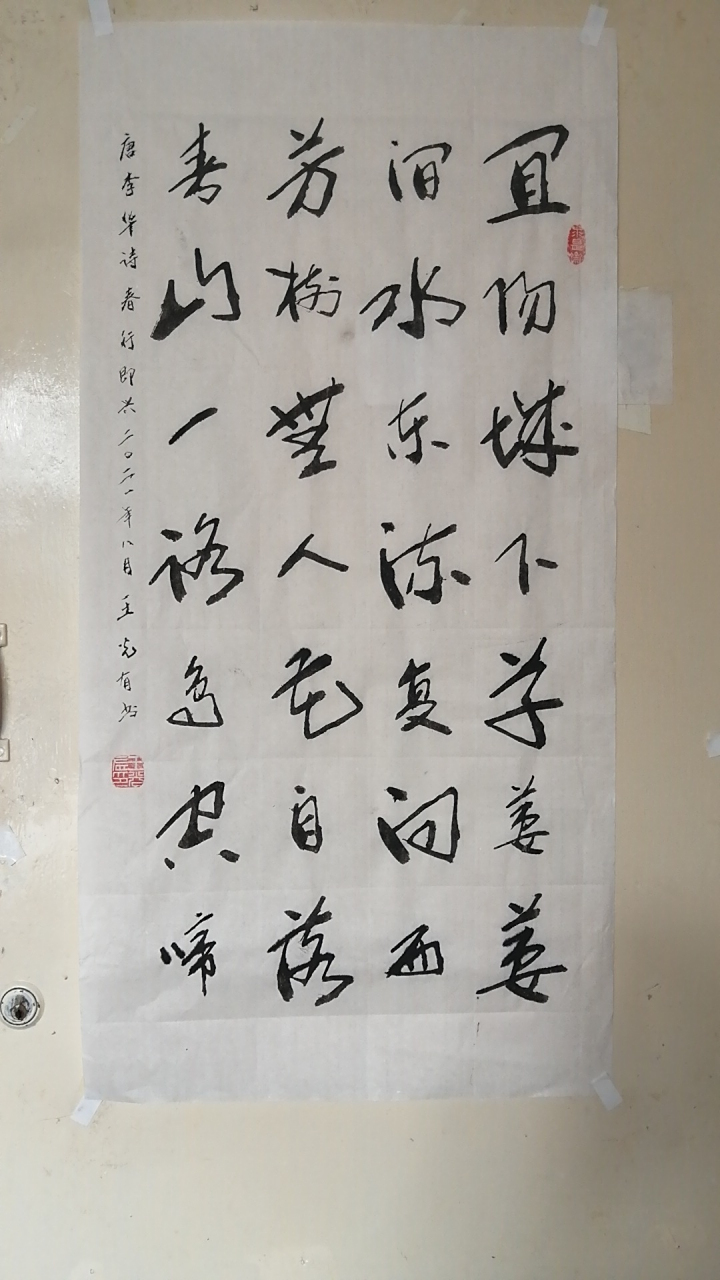 宜阳城下草萋萋
涧水东流复向西
芳树無人花自落
春山一路鸟空啼
唐李华诗春行即兴二〇二一年八月王光有书